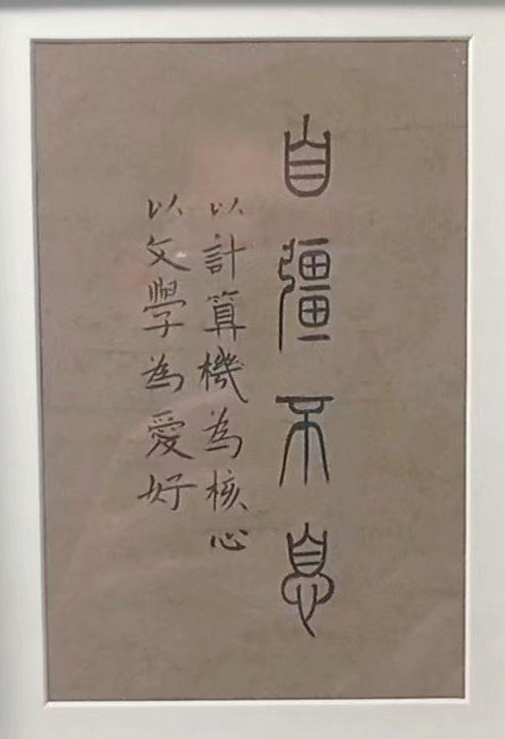 自彊不息
以計算機為核心
以文學為愛好